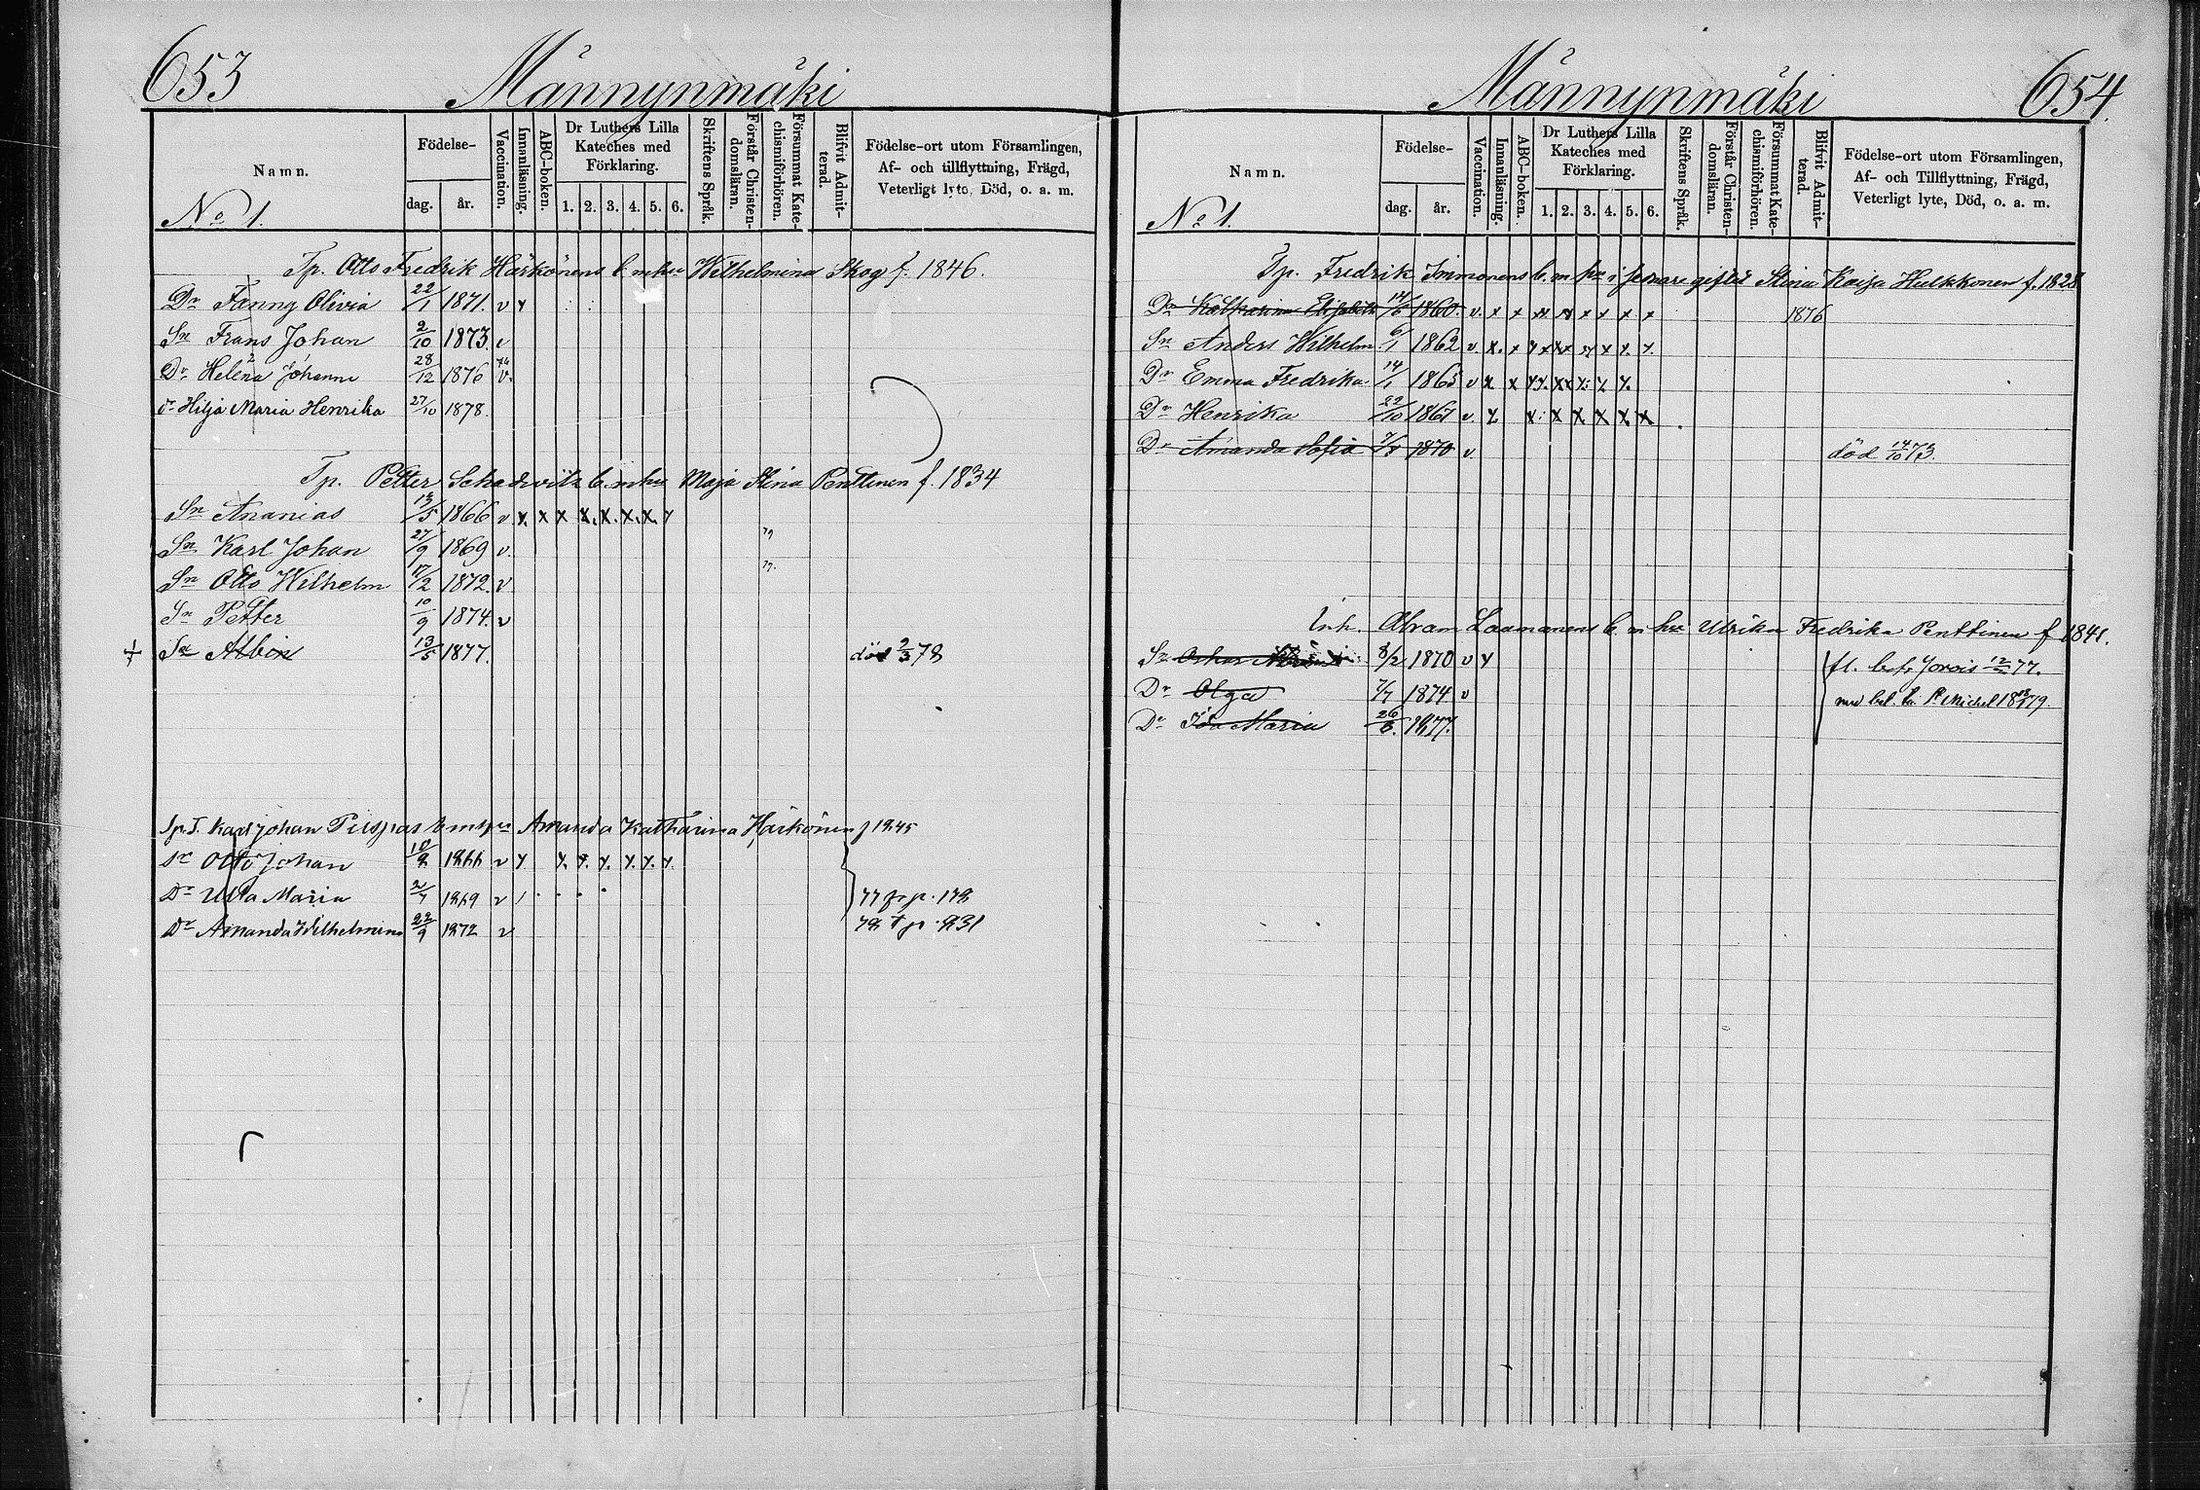 653
Männynmäki
Namn.
No 1.
Födelse-
dag. år.
Vaccination.
Innanläsning.
ABC-boken.
Dr Luthers Lilla
Kateches med
Förklaring.
1. 2. 3. 4. 5. 6.
Skriftens Språk.
Förstår Christen-
domsläran.
Försummat Kate-
chismiförhören.
Blifvit Admit-
terad.
Födelse-ort utom Församlingen,
Af- och tillflyttning, Frägd,
Veterligt lyte, Död, o. a. m.
Tp. Otto Fredrik Härkönens b. m hu Wilhelmina Skog f. 1846.
Dr Fanny Olivia 22/1 1871. v x
Sn Frans Johan 2/10 1873. v
Dr Helena Johanna 28/12 1876 v.
dr Hilja Maria Henrika 27/10 1878.
Tp. Petter Schadwitz b. m hu Maja Stina Penttinen f. 1834
Sn Ananias 13/5 1866 v x. x x x. x. x. x. x
Sn Karl Johan 27/9 1869 v. 79
Sn Otto Wilhelm 17/2 1872. v 77.
Sn Petter 10/9 1874. v
Sn Albin 13/5 1877. död 2/3 78
Karl Johan Amanda Katharina Härkönen f 1845
sn Otto Johan 1866 v x x. x. x. x. x. x.
Dr Ulla Maria 1869 v 77 fr p. 178
Dr Amanda Wilhelmina 22/9 1872 v 78 t p. 931
Männynmäki
654.
Namn.
No 1.
Födelse-
dag. år.
Vaccination.
Innanläsning.
ABC-boken.
Dr Luthers Lilla
Kateches med
Förklaring.
1. 2. 3. 4. 5. 6.
Skriftens Språk.
Förstår Christen-
domsläran.
Försummat Kate-
chismiförhören.
Blifvit Admit-
terad.
Födelse-ort utom Församlingen,
Af- och Tillflyttning, Frägd,
Veterligt lyte, Död, o. a. m.
Tp. Fredrik Immonens b. m hu i senare giftet Stina Kaisa Hulkkonen f. 1828
Dr Katharina Elisabeth 1860. v. x x xx xx x x x x 1876
Sn Anders Wilhelm 6/1 1862 v. x. x
Dr Emma Fredrika 14/1 1865 v x x
Dr Henrika 22/10 1867 v. x x. x x x x x
Dr Amanda Sofia 1870 v. död 14/10 73.
Inh. Abram Laamanens b. m hu Ulrika Fredrika Penttinen f 1841.
Sn Oskar 8/2 1870 v x fl. bet. Jorois 77.
Dr Olga 7/7 1874 v med bet. t. St Michel 1879.
Dr Ida Maria 1877.